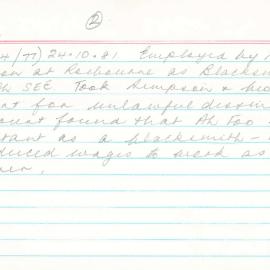 ②
4/77) 24.10.81. Employed by
on at Roebourne as Blacksm
SEE Took Simpson &
for unlawful dismiss
found that Ah Foo
tant as a blacksmith -
duced wages to work as